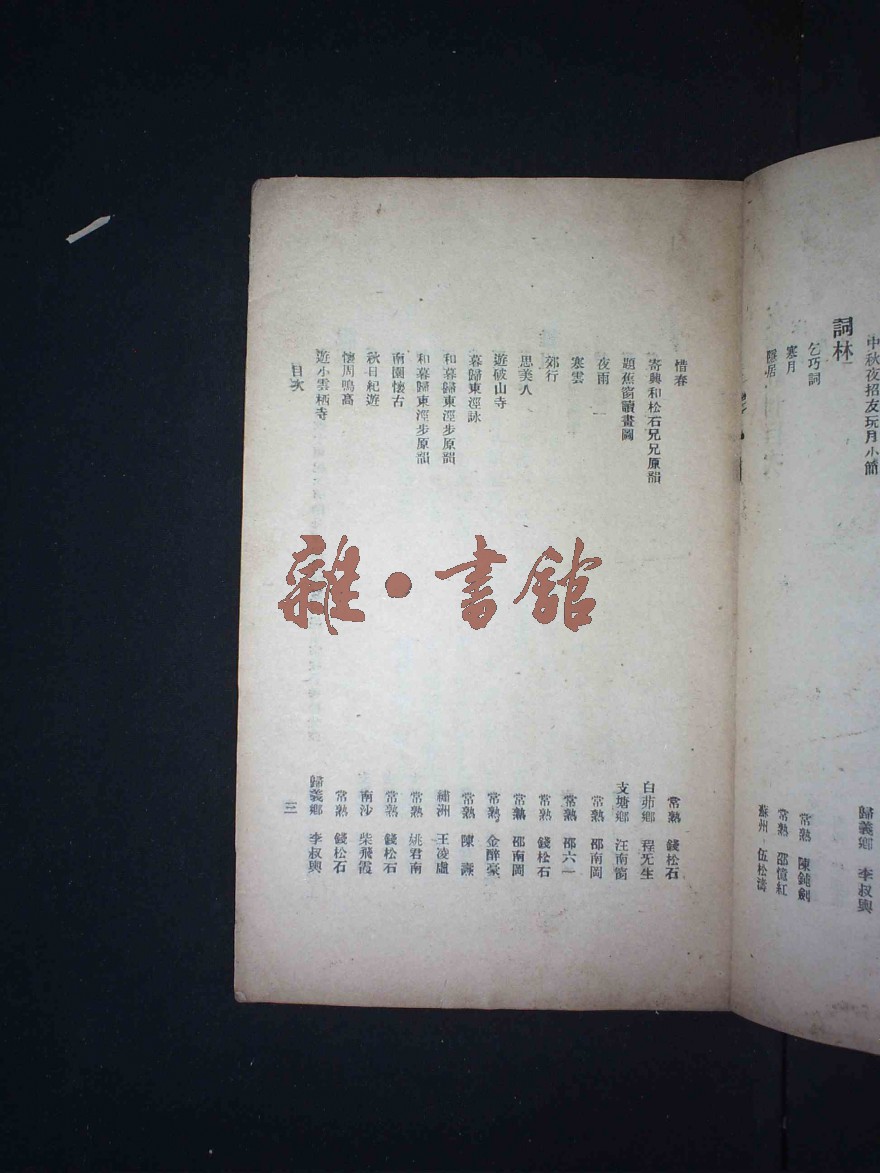 中秋夜招友玩月小簡
歸義鄉 李叔輿
詞林
乞巧詞
常熟 陳鈍劍
寒月
常熟 邵憶紅
隱居
蘇州 伍松濤
惜春
常熟 錢松石
寄興和松石兄兄原韻
白茆鄉 程旡生
題蕉窗讀畫圖
支塘鄉 汪南窗
夜雨
常熟 邵南岡
寒雲
常熟 邵六一
郊行
常熟 錢松石
思美人
常熟 邵南岡
遊破山寺
常熟 金醉豪
暮歸東涇詠
常熟 陳
和暮歸東涇步原韻
繡洲 王凌盧
和暮歸東涇步原韻
常熟 姚君南
南園懷古
常熟 錢松石
秋日紀遊
南沙 柴飛霞
懷周鳴高
常熟 錢松石
遊小雲栖寺
歸義鄉 李叔輿
目次
三
雜·書館